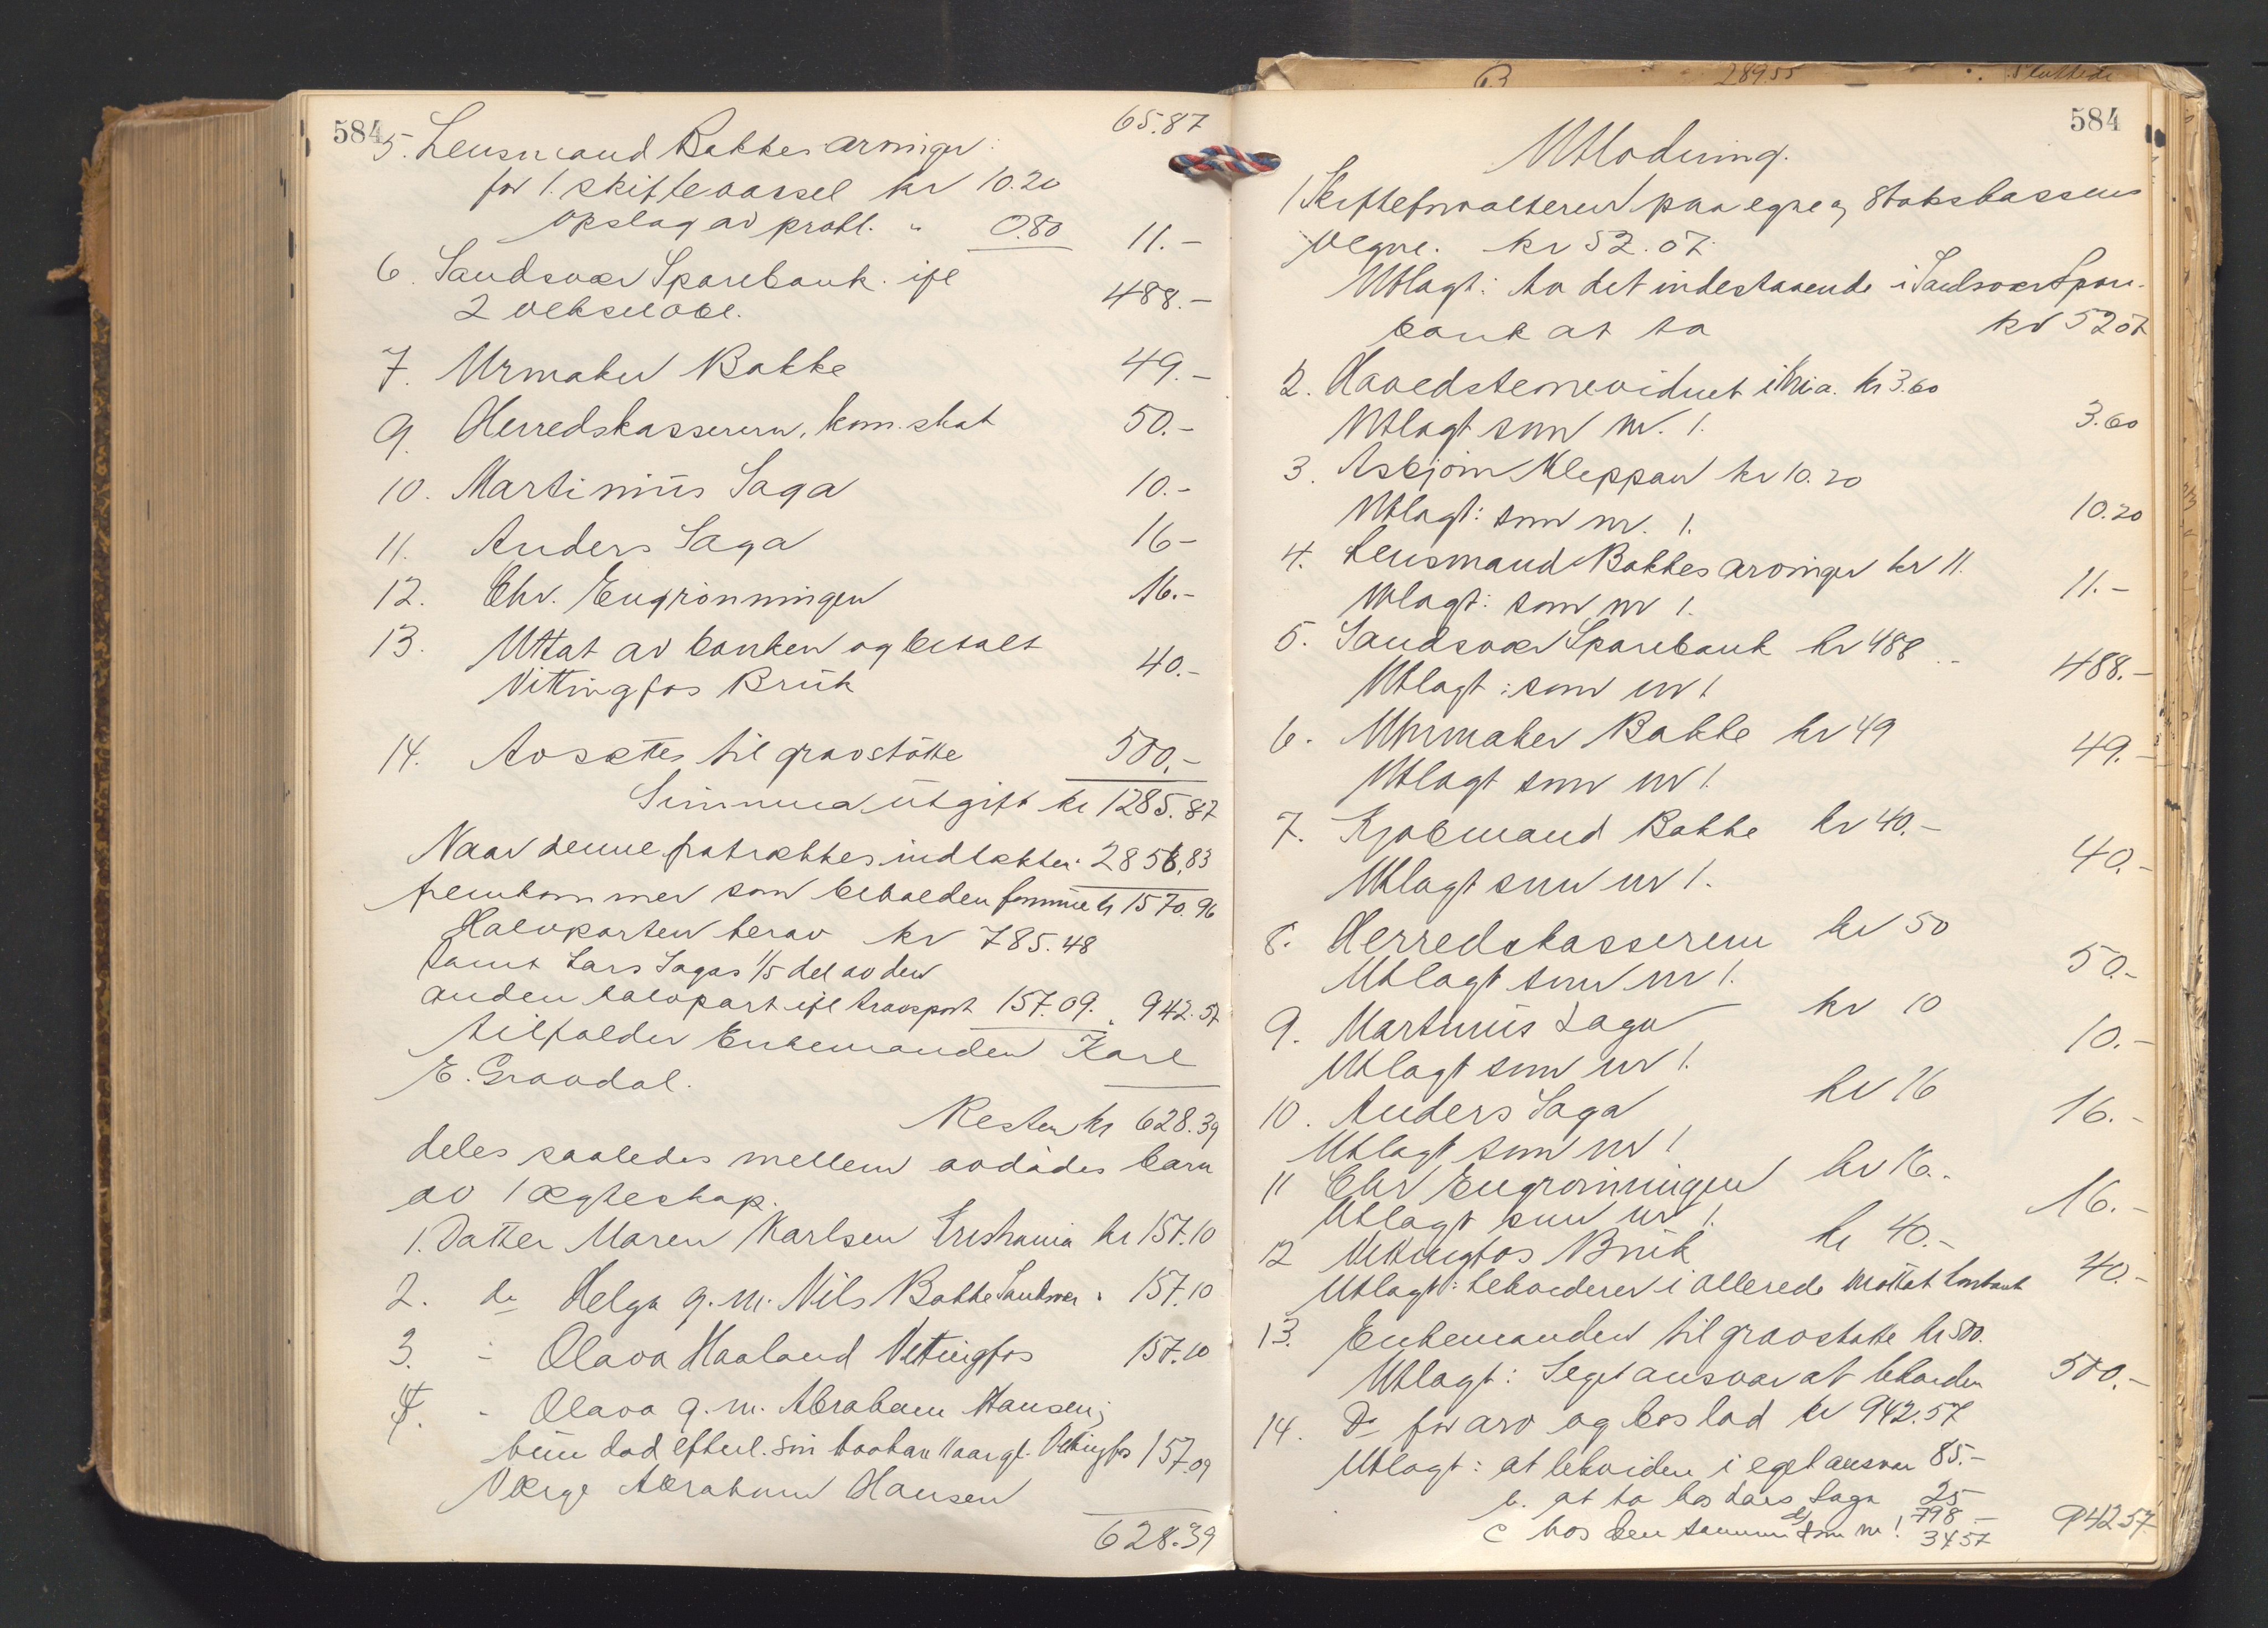 584
65.87
5. Lensmand Bakkes arvinger:
for 1. skiftevarsel kr 10.20
opslag av prokl. " 0.80 11.-
6. Sandsvær Sparebank ifl
2 vekselobl. 488.-
7. Urmaker Bakke 49.-
9. Herredskassereren, kom. skat 50.-
10. Martinius Saga 10.-
11. Anders Saga 16-
12. Chr. Engrønningen 16.-
13. Uttat av banken og betalt
Vittingfos Bruk 40.-
14. Avsættes til gravstøtte 500.-
Summa utgift kr 1285.87
Naar denne fratrækkes indtækten 2856.83
fremkommer som beholden formue kr 1570.96
Halvparten herav kr 785.48
samt Lars Sagas 1/5 del av den
anden halvpart ifl transport 157.09. " 942.57
tilfalder Enkemanden Karl
E. Gravdal.
Resten kr 628.39
deles saaledes mellem avdødes barn
av 1 ægteskap.
1. Datter Maren Karlsen Kristiania kr 157.10
2. do Helga g.m. Nils Bakke Sandsvær " 157.10
3. - Olava Haaland Vittingfos 157.10
4. - Olava g.m. Abraham Hansen;
hun død efterl. søn Vittingfos 157.09
Værge Abraham Hansen
628.39
63 289.55 Sluttede
584
Utlodning.
1 Skifteforvalteren paa egne og Statskassens
vegne. kr 52.07.
Utlagt: ta det indestaaende i Sandsvær Spare-
bank at ta kr 52 07
2. Hovedstempelet kr 3.60
Utlagt som nr. 1. 3.60
3. Asbjørn Kleppan kr 10.20
Utlagt: som nr. 1. 10.20
4. Lensmand Bakkes arvinger kr 11.
Utlagt: som nr 1. 11.-
5. Sandsvær Sparebank kr 488.-
Utlagt: som nr 1 488.-
6. Uhrmaker Bakke kr 49
Utlagt som nr 1. 49.-
7. Kjøbmand Bakke kr 40.-
Utlagt som nr 1. 40.-
8. Herredskassereren kr 50
Utlagt som nr 1. 50.-
9. Martinius Saga kr 10
Utlagt som nr 1. 10.-
10. Anders Saga kr 16
Utlagt som nr 1 16.-
11 Chr Engrønningen kr 16.-
Utlagt som nr 1. 16.-
12 Vittingfos Bruk kr 40.-
Utlagt: beholder i allerede mottat kontant 40.-
13. Enkemanden til gravstøtte kr 500.
Utlagt: I eget ansvar at beholde 500.-
14. Do for arv og boslod kr 942.57
Utlagt: at beholde i eget ansvar 85.-
b. at ta hos Lars Saga 25-
c hos den samme 798.-
d) som nr 1. 34 57 942 57